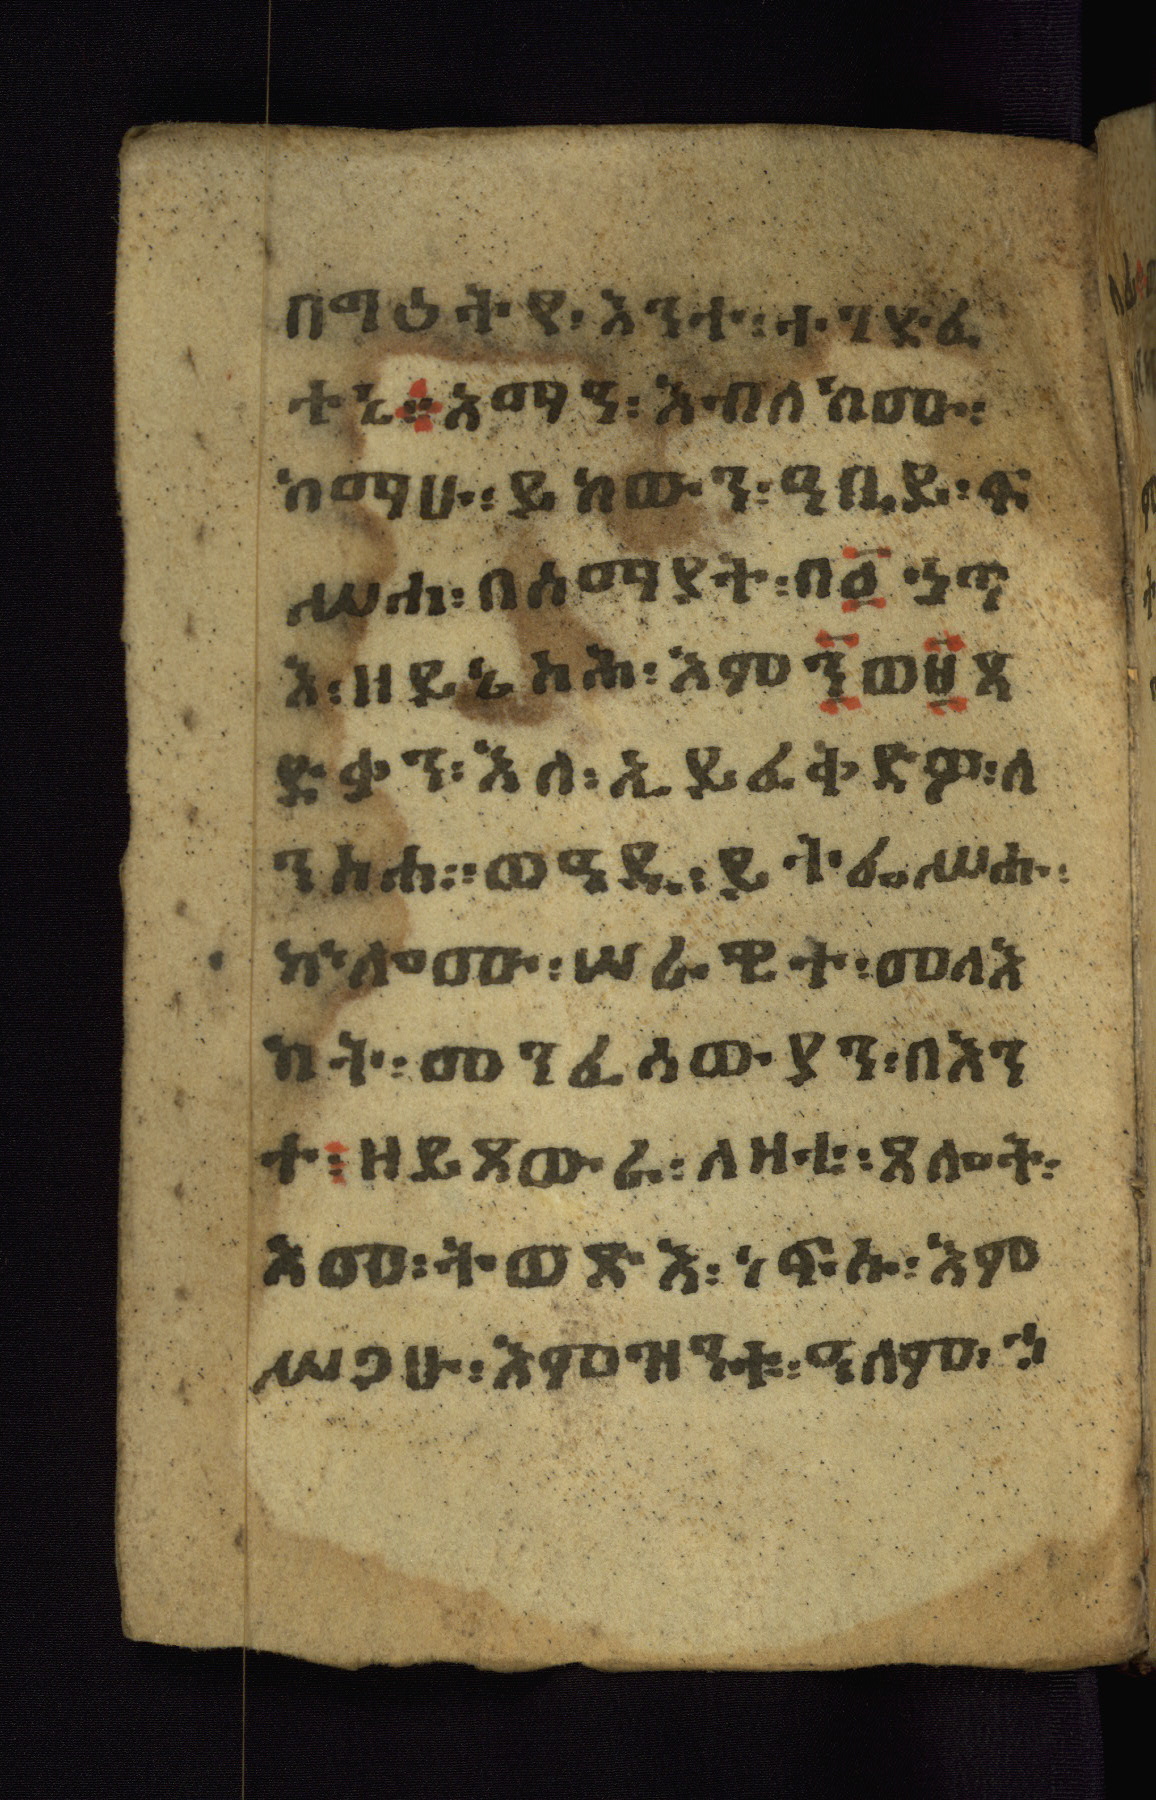 በማዕት ያ፡ እንተ፡ ተገድፈ
ተኒ፨ አማን፡ እብለክሙ፡
ከማሁ፡ ይከውን፡ ዓቢይ፡ ፍ
ሥሐ፡ በሰማያት፡ በ፩ ኃጥ
እ፡ ዘይኔስሕ፡ እም፺ወ፱ጻ
ድቃን፡ እለ፡ ኢይፈቅድም፡ ለ
ንስሐ። ወዓዲ፡ ይትፌሥሑ፡
ኵሎሙ፡ ሠራዊተ፡ መላእ
ክት፡ መንፈሳውያን፡ በእን
ተ፡ ዘይጸውራ፡ ለዛቲ፡ ጸሎት፡
አመ፡ ትወጽእ፡ ነፍሱ፡ እም
ሥጋሁ፡ እምዝንቱ፡ ዓለም፡ ኃ